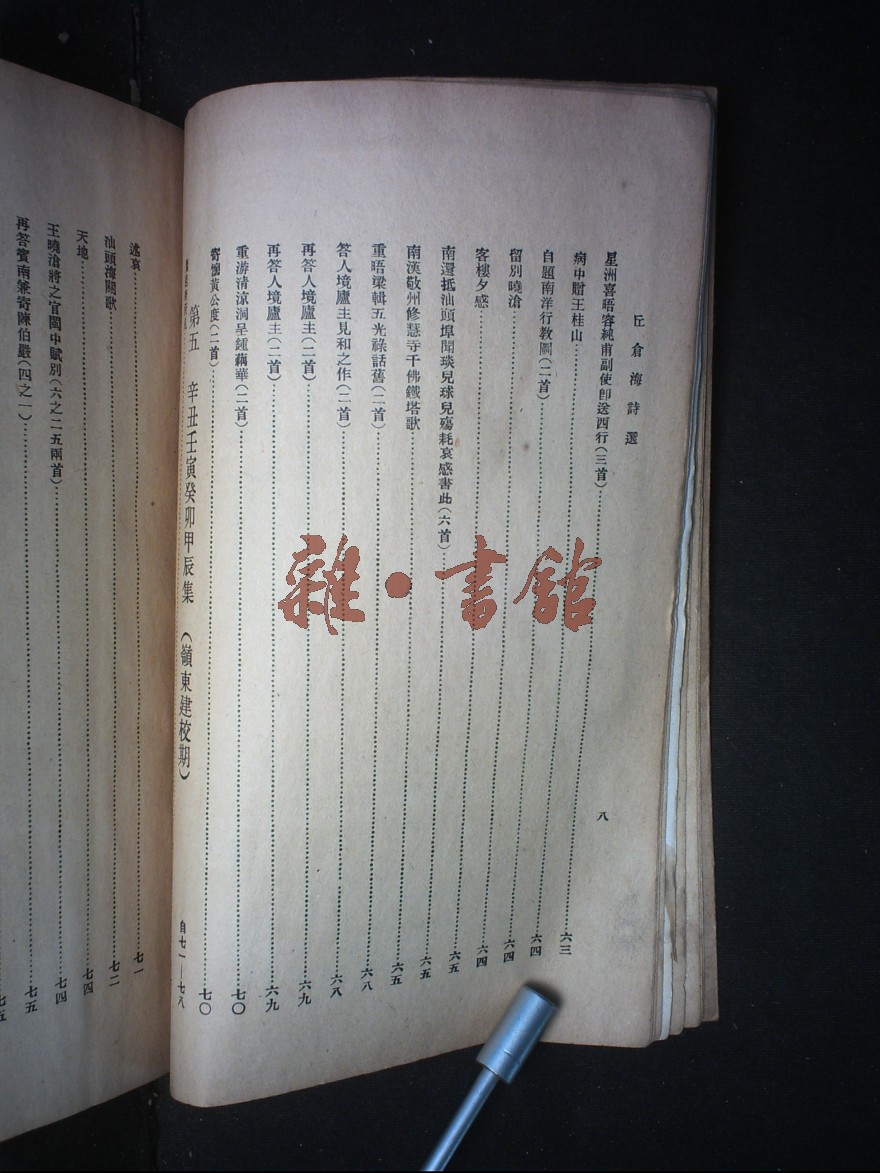 丘倉海詩選
八
星洲喜晤容純甫副使卽送西行(三首)……六三
病中贈王桂山……六四
自題南洋行敎圖(二首)……六四
留別曉滄……六四
客樓夕感……六五
南還抵汕頭埠聞琰兒球兒殤耗哀感書此(六首)……六五
南漢敬州修慧寺千佛鐵塔歌……六五
重晤梁輯五光祿話舊(二首)……六八
答人境廬主見和之作(二首)……六八
再答人境廬主(二首)……六九
再答人境廬主(二首)……六九
重游淸涼洞呈鍾藕華(二首)……七〇
寄懷黃公度(二首)……七〇
第五 辛丑壬寅癸卯甲辰集 (嶺東建校期) 自七一—七八
述哀……七一
汕頭海關歌……七二
天地……七四
王曉滄將之官閩中賦別(六之二五兩首)……七四
再答賓南兼寄陳伯嚴(四之一)……七五
七五
雜·書館